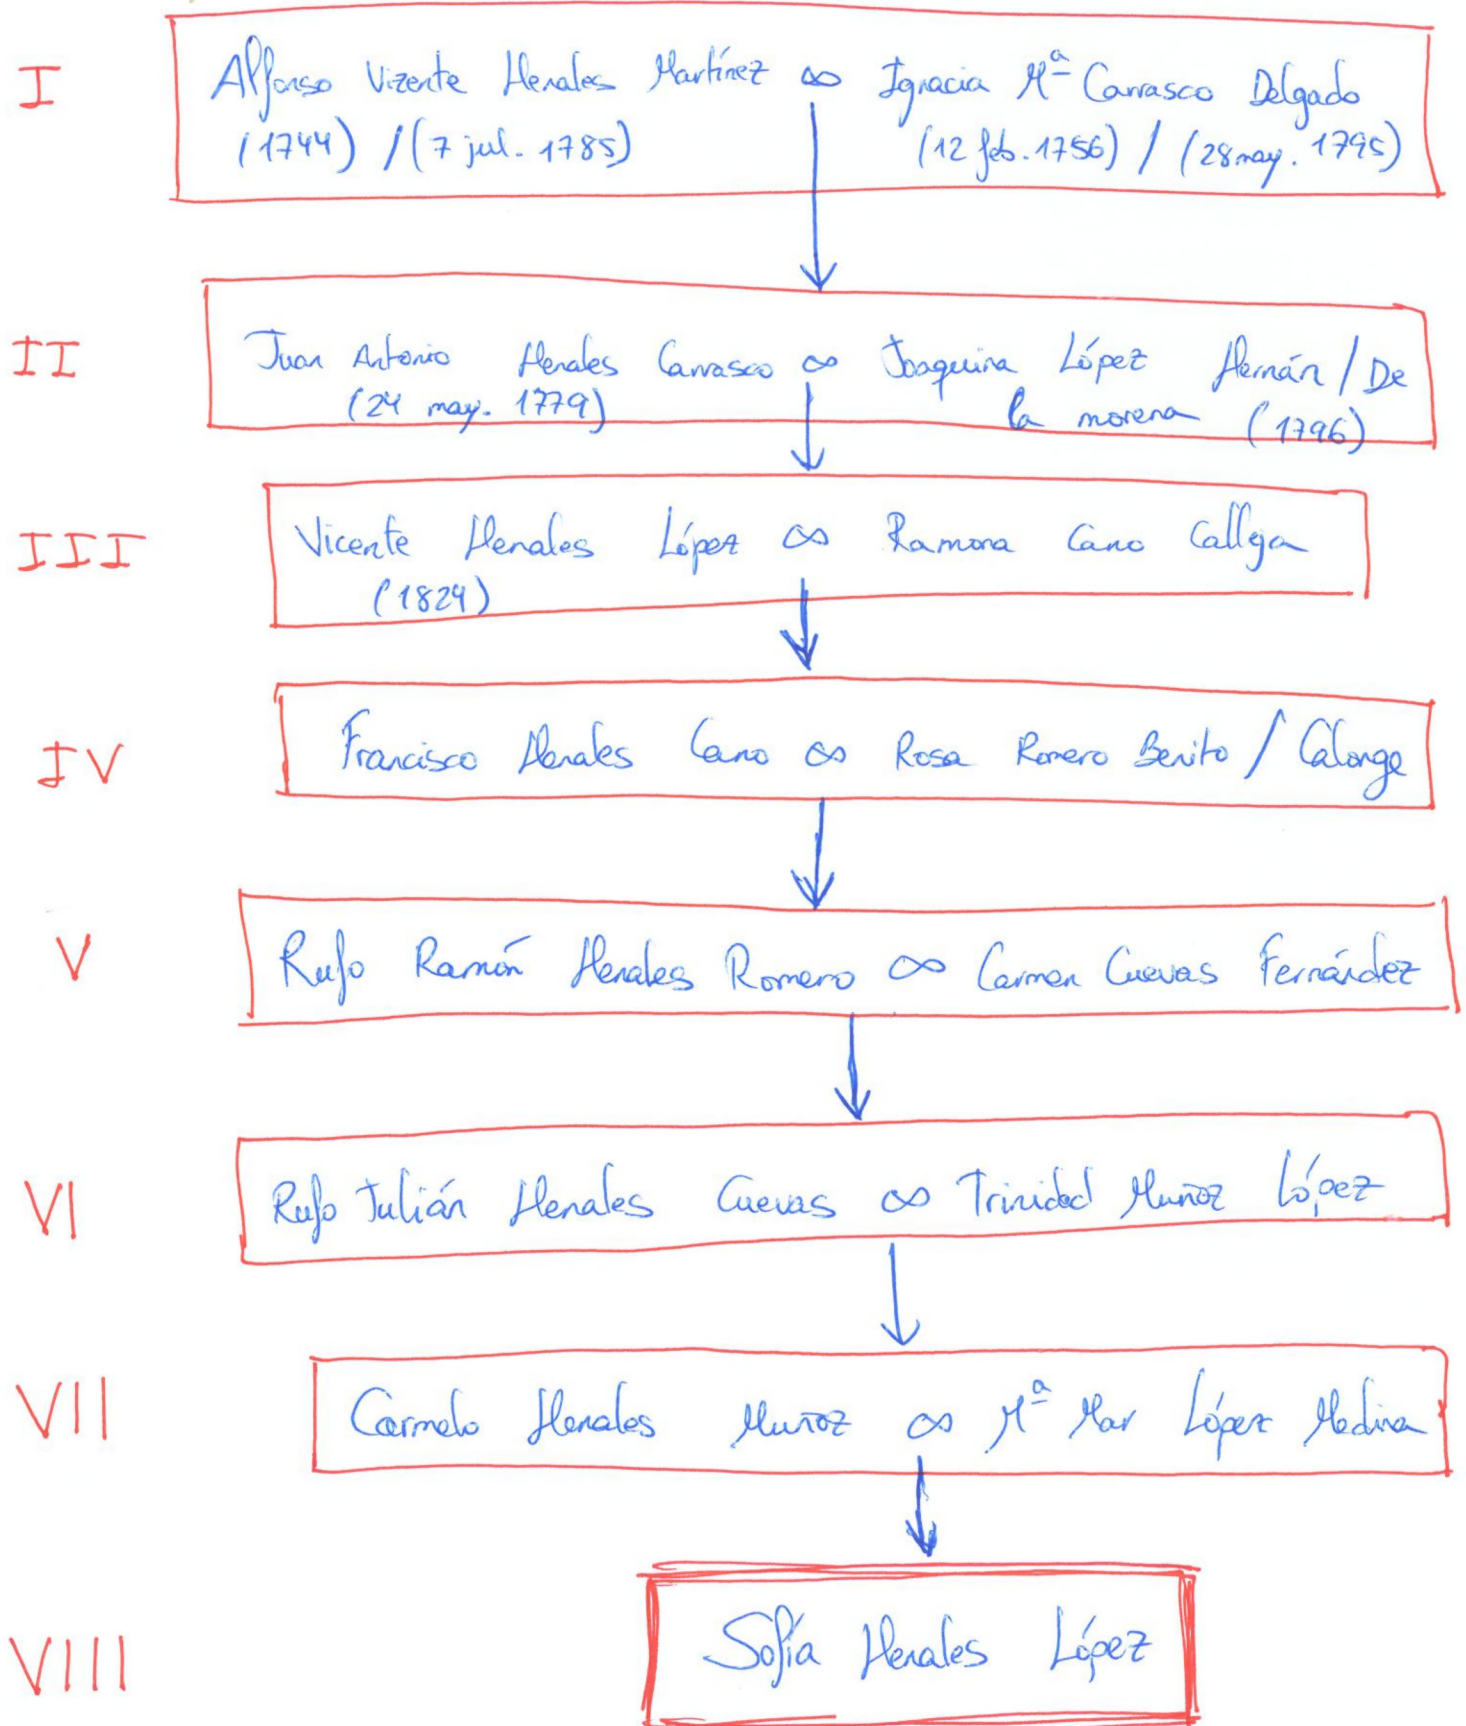 I
Alfonso Vizente Henales Martínez ∞ Ignacia Mª Carrasco Delgado
(1744) / (7 jul. 1785) (12 feb. 1756) / (28 may. 1795)
II
Juan Antonio Henales Carrasco ∞ Joaquina López Hernán / De
(24 may. 1779) la morena (1796)
III
Vicente Henales López ∞ Ramona Cano Calleja
(1824)
IV
Francisco Henales Cano ∞ Rosa Romero Benito / Calonge
V
Rufo Ramón Henales Romero ∞ Carmen Cuevas Fernández
VI
Rufo Julián Henales Cuevas ∞ Trinidad Muñoz López
VII
Carmelo Henales Muñoz ∞ Mª Mar López Medina
VIII
Sofía Henales López